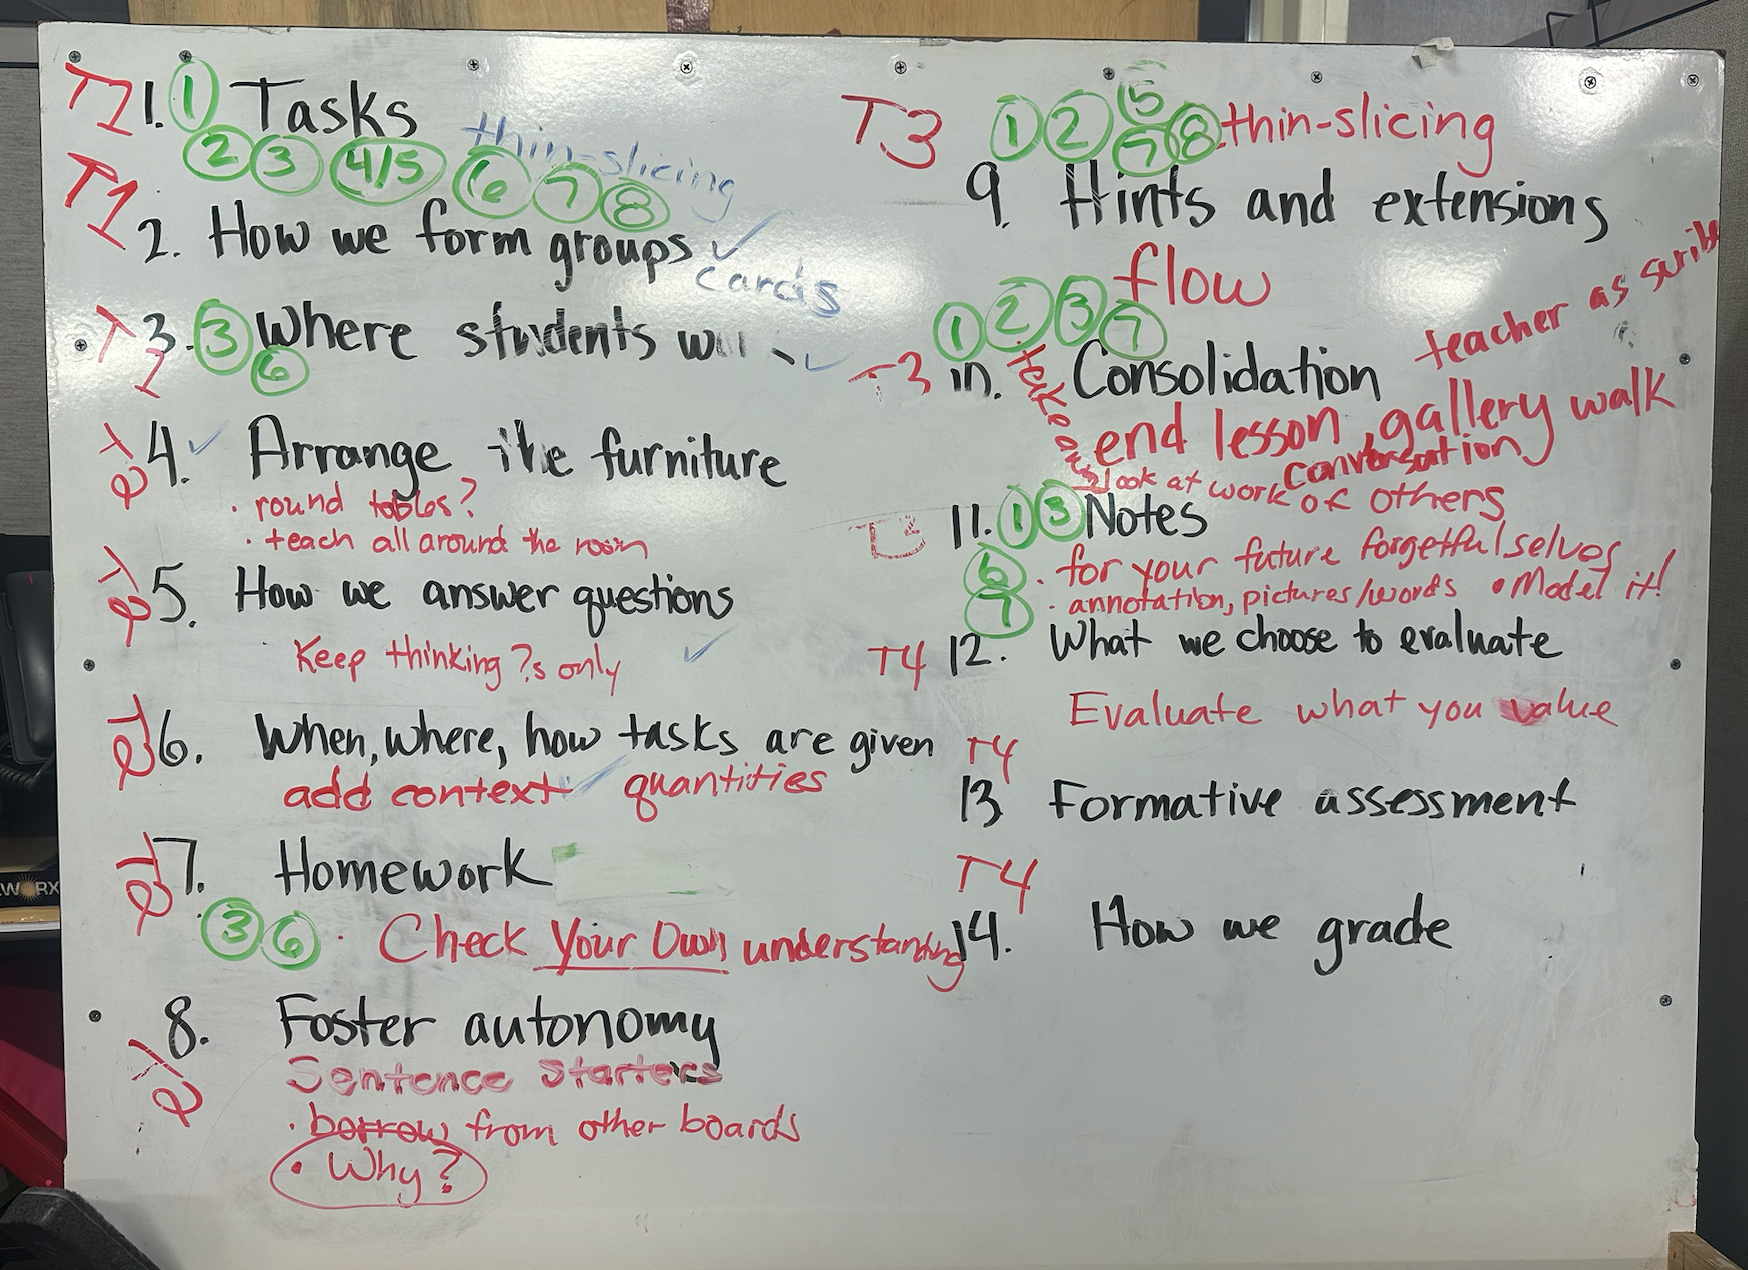 T1 1. 1 Tasks
thin-slicing
2 3 4/5 6 7 8
T1 2. How we form groups ✓
cards
T1 3. 3 Where students ✓
6
T2 4. ✓ Arrange the furniture
· round tables?
· teach all around the room
T2 5. How we answer questions
Keep thinking ?s only ✓
T2 6. When, where, how tasks are given
add context ✓ quantities
T2 7. Homework
3 6 · Check Your Own understanding
T2 8. Foster autonomy
Sentence Starters
· borrow from other boards
· Why?
T3 1 2 5 7 8 thin-slicing
9. Hints and extensions
flow
1 2 3 7
teacher as scribe
T3 10. Consolidation
take an
end lesson, gallery walk
conversation
look at work of others
T3 11. 1 3 Notes
6 · for your future forgetful selves
7 · annotation, pictures/words • Model it!
T4 12. What we choose to evaluate
Evaluate what you value
T4
13 Formative assessment
T4
14. How we grade
W RX